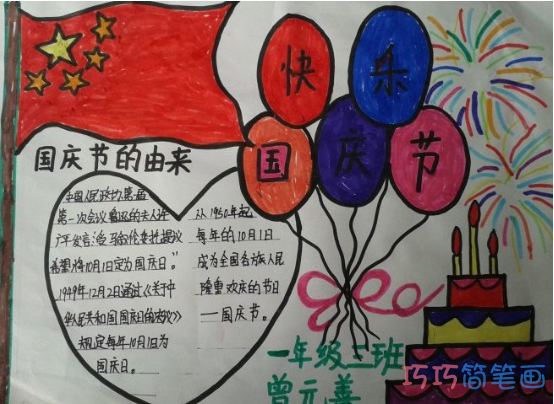 快乐
国庆节
国庆节的由来
中国人民政协第一届
第一次会议
广平发言
希望将10月1日定为国庆日。"
1949年12月2日通过《关于中
华人民共和国国庆日的决议》
规定每年10月1日为
国庆日。
从1950年起
每年的10月1日
成为全国各族人民
隆重欢庆的节日
—国庆节。
一年级三班
曾元善
巧巧简笔画